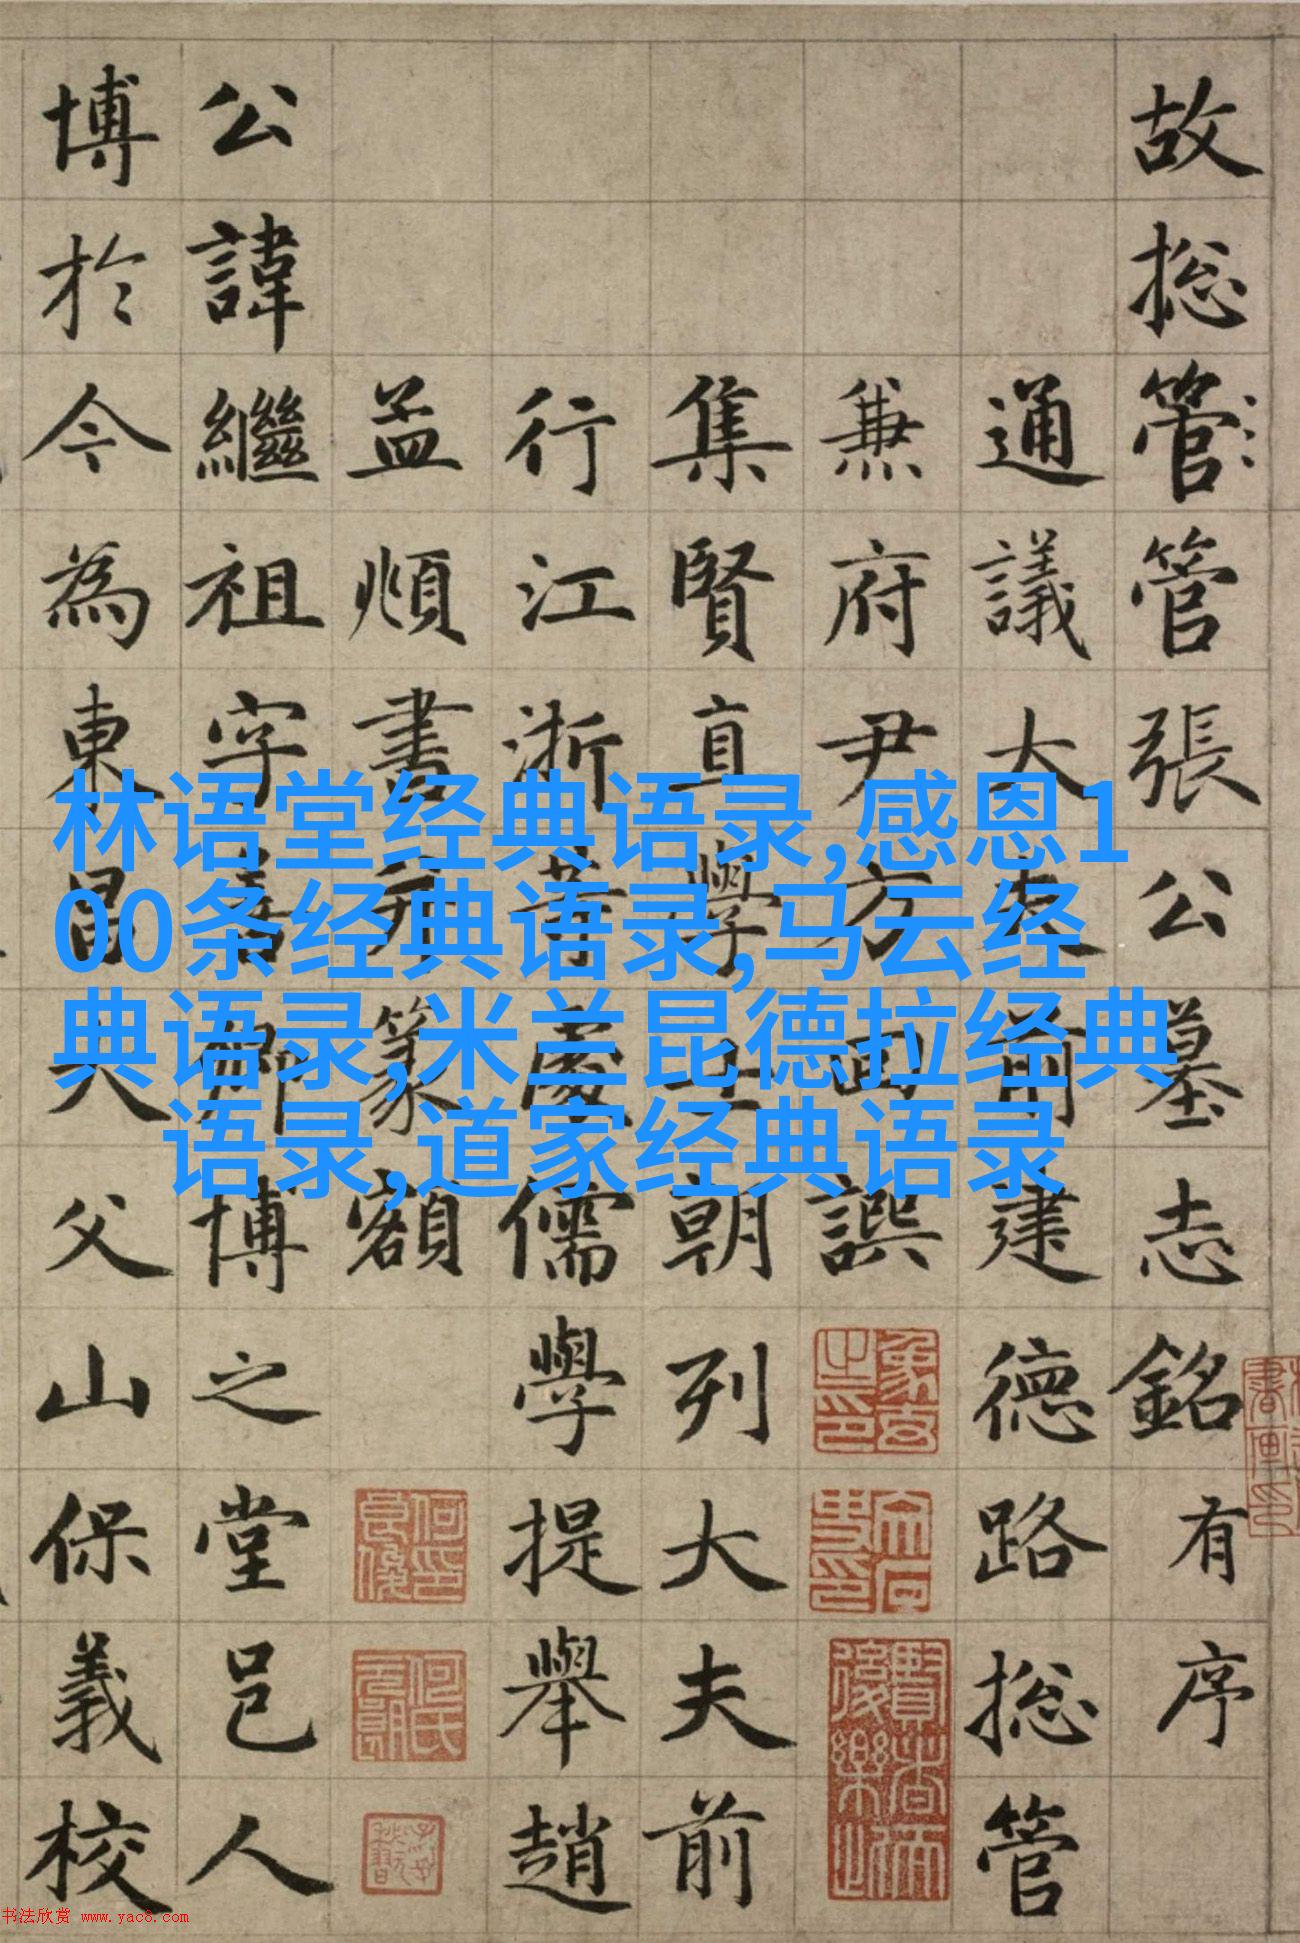 故捴管管張公墓志銘有序
通議大夫前建德路捴管
兼府尹方回譔
集賢直學士朝列大夫前
行江浙等處儒學提舉趙
孟頫書并篆額
公諱繼祖字善卿博之堂邑人
博於今為東昌大父山保義校
林语堂经典语录,感恩1
00条经典语录,马云经
典语录,米兰昆德拉经典
语录,道家经典语录
书法欣赏 www.yac8.com